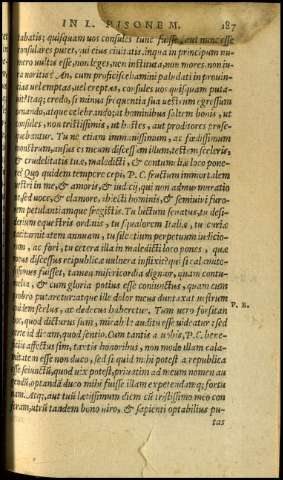 IN L. PISONEM. 187
tabatis; quisquam uos consules tunc fuisse, aut nunc esse
consulares putet, aut eius ciuitatis, in qua in principum nu-
mero uultis esse, non leges, non instituta, non mores, non iu-
ra noritis? An, cum proficiscebamini paludati in prouin-
cias uel emptas, uel ereptas, consules uos quisquam puta-
uit? Itaq;, credo, si minus frequentia sua uestrum egressum
ornando, atque celebrando; at hominibus saltem bonis, ut
consules, non tristissimis, ut hostes, aut proditores prose-
quebantur. Tu ne etiam immanissimum, ac foedissimum
monstrum, ausus es meum discessum illum, testem sceleris,
& crudelitatis tuae, maledicti, & contumeliae loco pone-
re? Quo quidem tempore cepi, P. C. fructum immortalem
uestri in me, & amoris, & iudicij, qui non admurmuratio
ne, sed uoce, & clamore, abiecti hominis, & semiuiui furo-
rem petulantiamque fregistis. Tu luctum senatus, tu desi-
derium equestris ordinis, tu squalorem Italiae, tu curiae
taciturnitatem annuam, tu silentium perpetuum iudicio-
rum, ac fori, tu cetera illa in maledicti loco pones, quae
meus discessus reipublicae uulnera inflixit? qui si calamito-
sissimus fuisset, tamen misericordia dignior, quam contu-
melia, & cum gloria potius esse coniunctus, quam cum
probro putaretur: atque ille dolor meus duntaxat uestrum
quidem scelus, ac dedecus haberetur. Tum uero forsitan
P. R.
hoc, quod dicturus sum, mirabile auditu esse uideatur: sed
certe id dicam, quod sentio. Cum tantis a uobis, P. C. bene-
ficiis affectus sim, tantis honoribus, non modo illam cala-
mitatem esse non duco, sed si quid mihi potest a republica
esse seiunctum, quod uix potest, priuatim ad meum nomen au
gendum, optandam duco mihi fuisse illam expetendamq; fortu
nam. Atq;, aut tuum laetissimum diem cum tristissimo meo con
feram, utrum tandem bono uiro, & sapienti optabilius pu-
tas